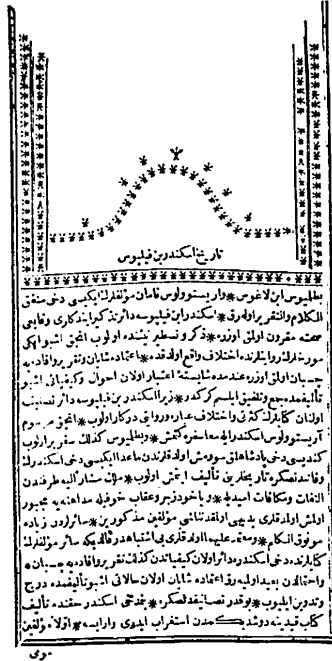 تاريخ اسكندر بن فيليپوس
بطلميوس ابن لاغوس وارستوولوس نامان مؤلفلرك ايكيسى دخى متفق
الكلام والتقرير اوله رق اسكندر ابن فيليپوسه دائر تذكير ايتدكلرى وقايعى
صحته مقرون اولمق اوزره ذكر و تسطير اولوب انجق اشبو ايكى
مورخلرك روايتلرنده اختلاف واقع اولدقده اعتماده شايان وتقرير وافاده يه
چسبان اولمق اوزره عندمده شايسته اعتبار اولان احوال وكيفياتى اشبو
تأليفمده جمع وتلفيق ايلسم كركدر زيرا اسكندر بن فيليپوسه دائر تصنيف
اولنان كتابلرك كثرتى واختلاف عبارة وروايتى دركار اولوب انجق مرسوم
آرستوولوس اسكندر ايله معا سفره كتمش وبطلميوس كذلك سفر بر اولوب
كنديسى دخى پادشاهلق سورمش اولدقلرندن ماعدا ايكيسى دخى اسكندرك
وفاتندنصكره تاريخلرين تأليف ايتمش اولوب ملك مشار اليه طرفندن
التفات ومكافات اميديله وياخود زجر وعقاب خوفيله مداهنه يه مجبور
اولمامش اولدقلرى بديهى اولمقدن ناشى مؤلفين مذكورين سائرلردن زياده
موثوق الكلام ومعتمد عليه اولدقلرى بى اشتباهدر فالديكه سائر مؤلفلرك
كتابلرنده دخى اسكندره دائر اولان كيفياتدن كذلك تقرير وافاده يه چسبان
واحتمالدن بعيد اوليه رق اعتماده شايان اولان حالاتى اشبو تأليفمده درج
وتدوين ايلدم بوقدر تصانيفدنصكره بنم دخى اسكندر حقنده تأليف
كتاب قيدينه دوشديكمدن استغراب ايدرى وار ايسه اولا مؤلفين